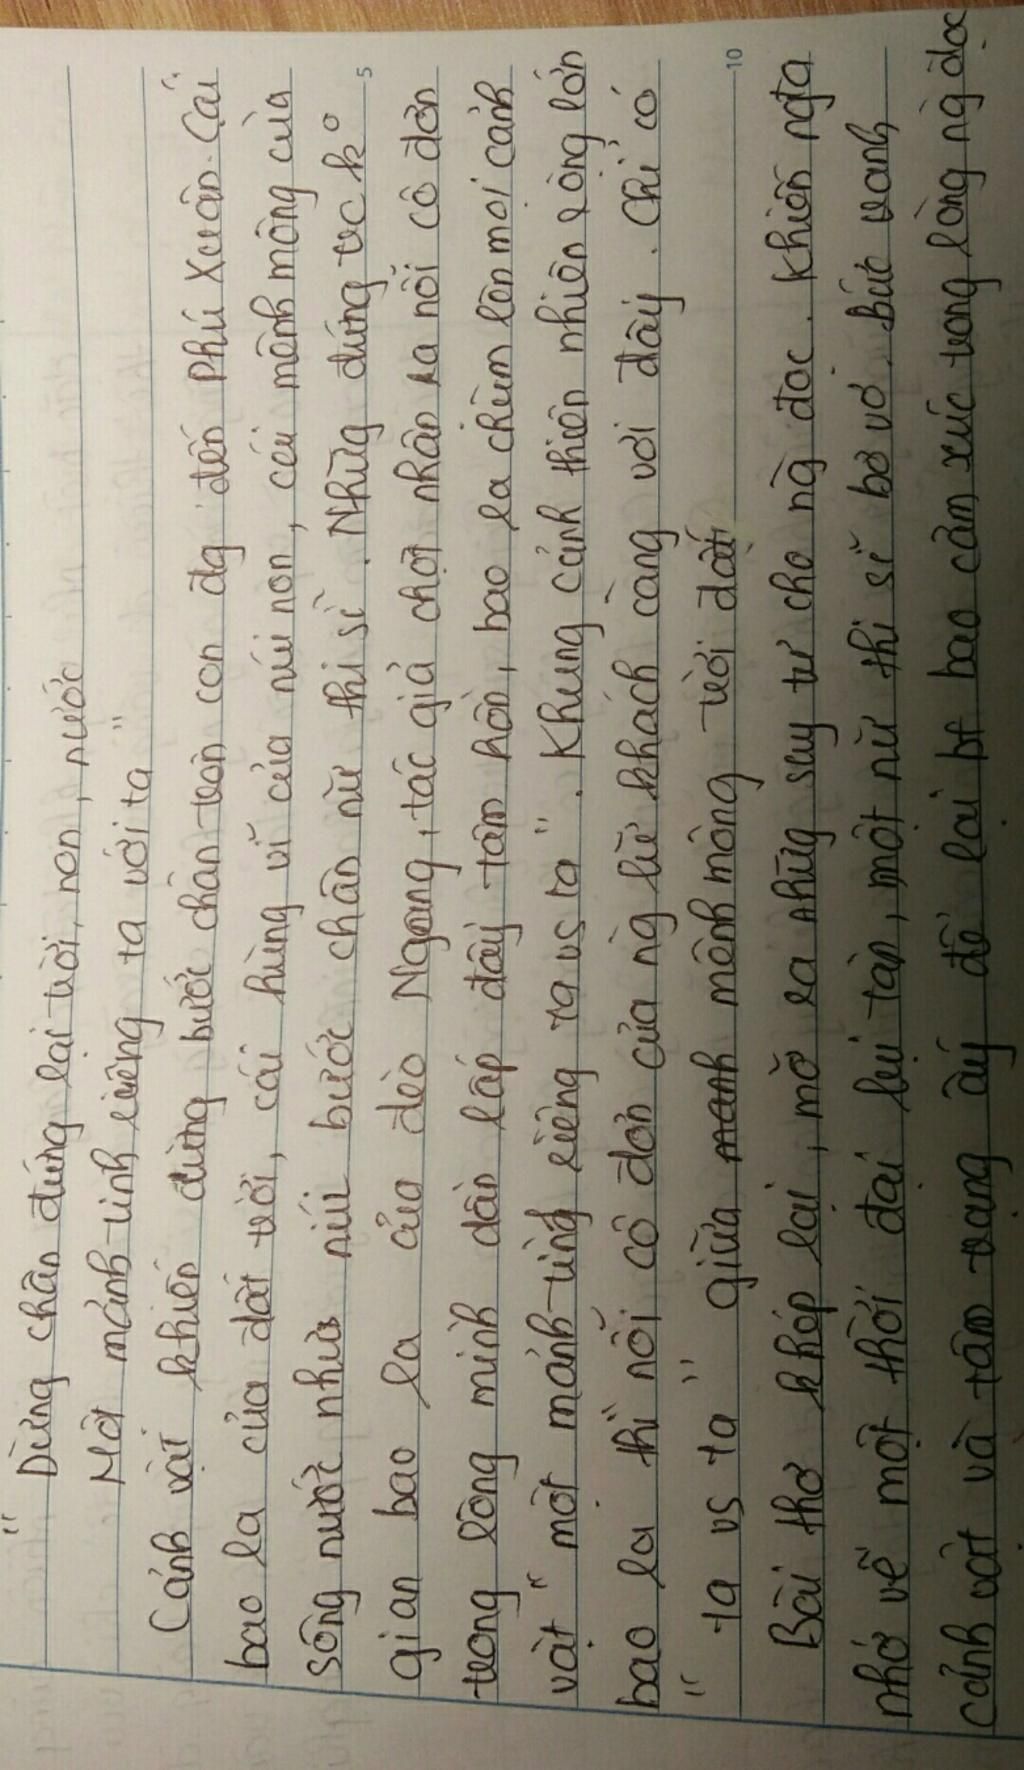 " Dừng chân đứng lại trời, non, nước
Một mảnh tình riêng ta với ta "
Cảnh vật khiến dừng bước chân trên con đg đến Phú Xuân. Cái
bao la của đất trời, cái hùng vĩ của núi non, cái mênh mông của
sông nước như níu bước chân nữ thi sĩ. Nhưng đứng trc ko
gian bao la của đèo Ngang, tác giả chợt nhận ra nỗi cô đơn
trong lòng mình dần lấp đầy tâm hồn, bao la chùm lên mọi cảnh
vật " một mảnh tình riêng ta vs ta ". Khung cảnh thiên nhiên rộng lớn
bao la thì nỗi cô đơn của ng lữ khách càng vơi đầy. Chỉ có
" ta vs ta " giữa mênh mông trời đất
Bài thơ khép lại, mở ra những suy tư cho ng đọc. Khiến ngta
nhớ về một thời đại lụi tàn, một nữ thi sĩ bơ vơ. bức tranh
cảnh vật và tâm trạng ấy để lại bt bao cảm xúc trong lòng ng đọc
5
10